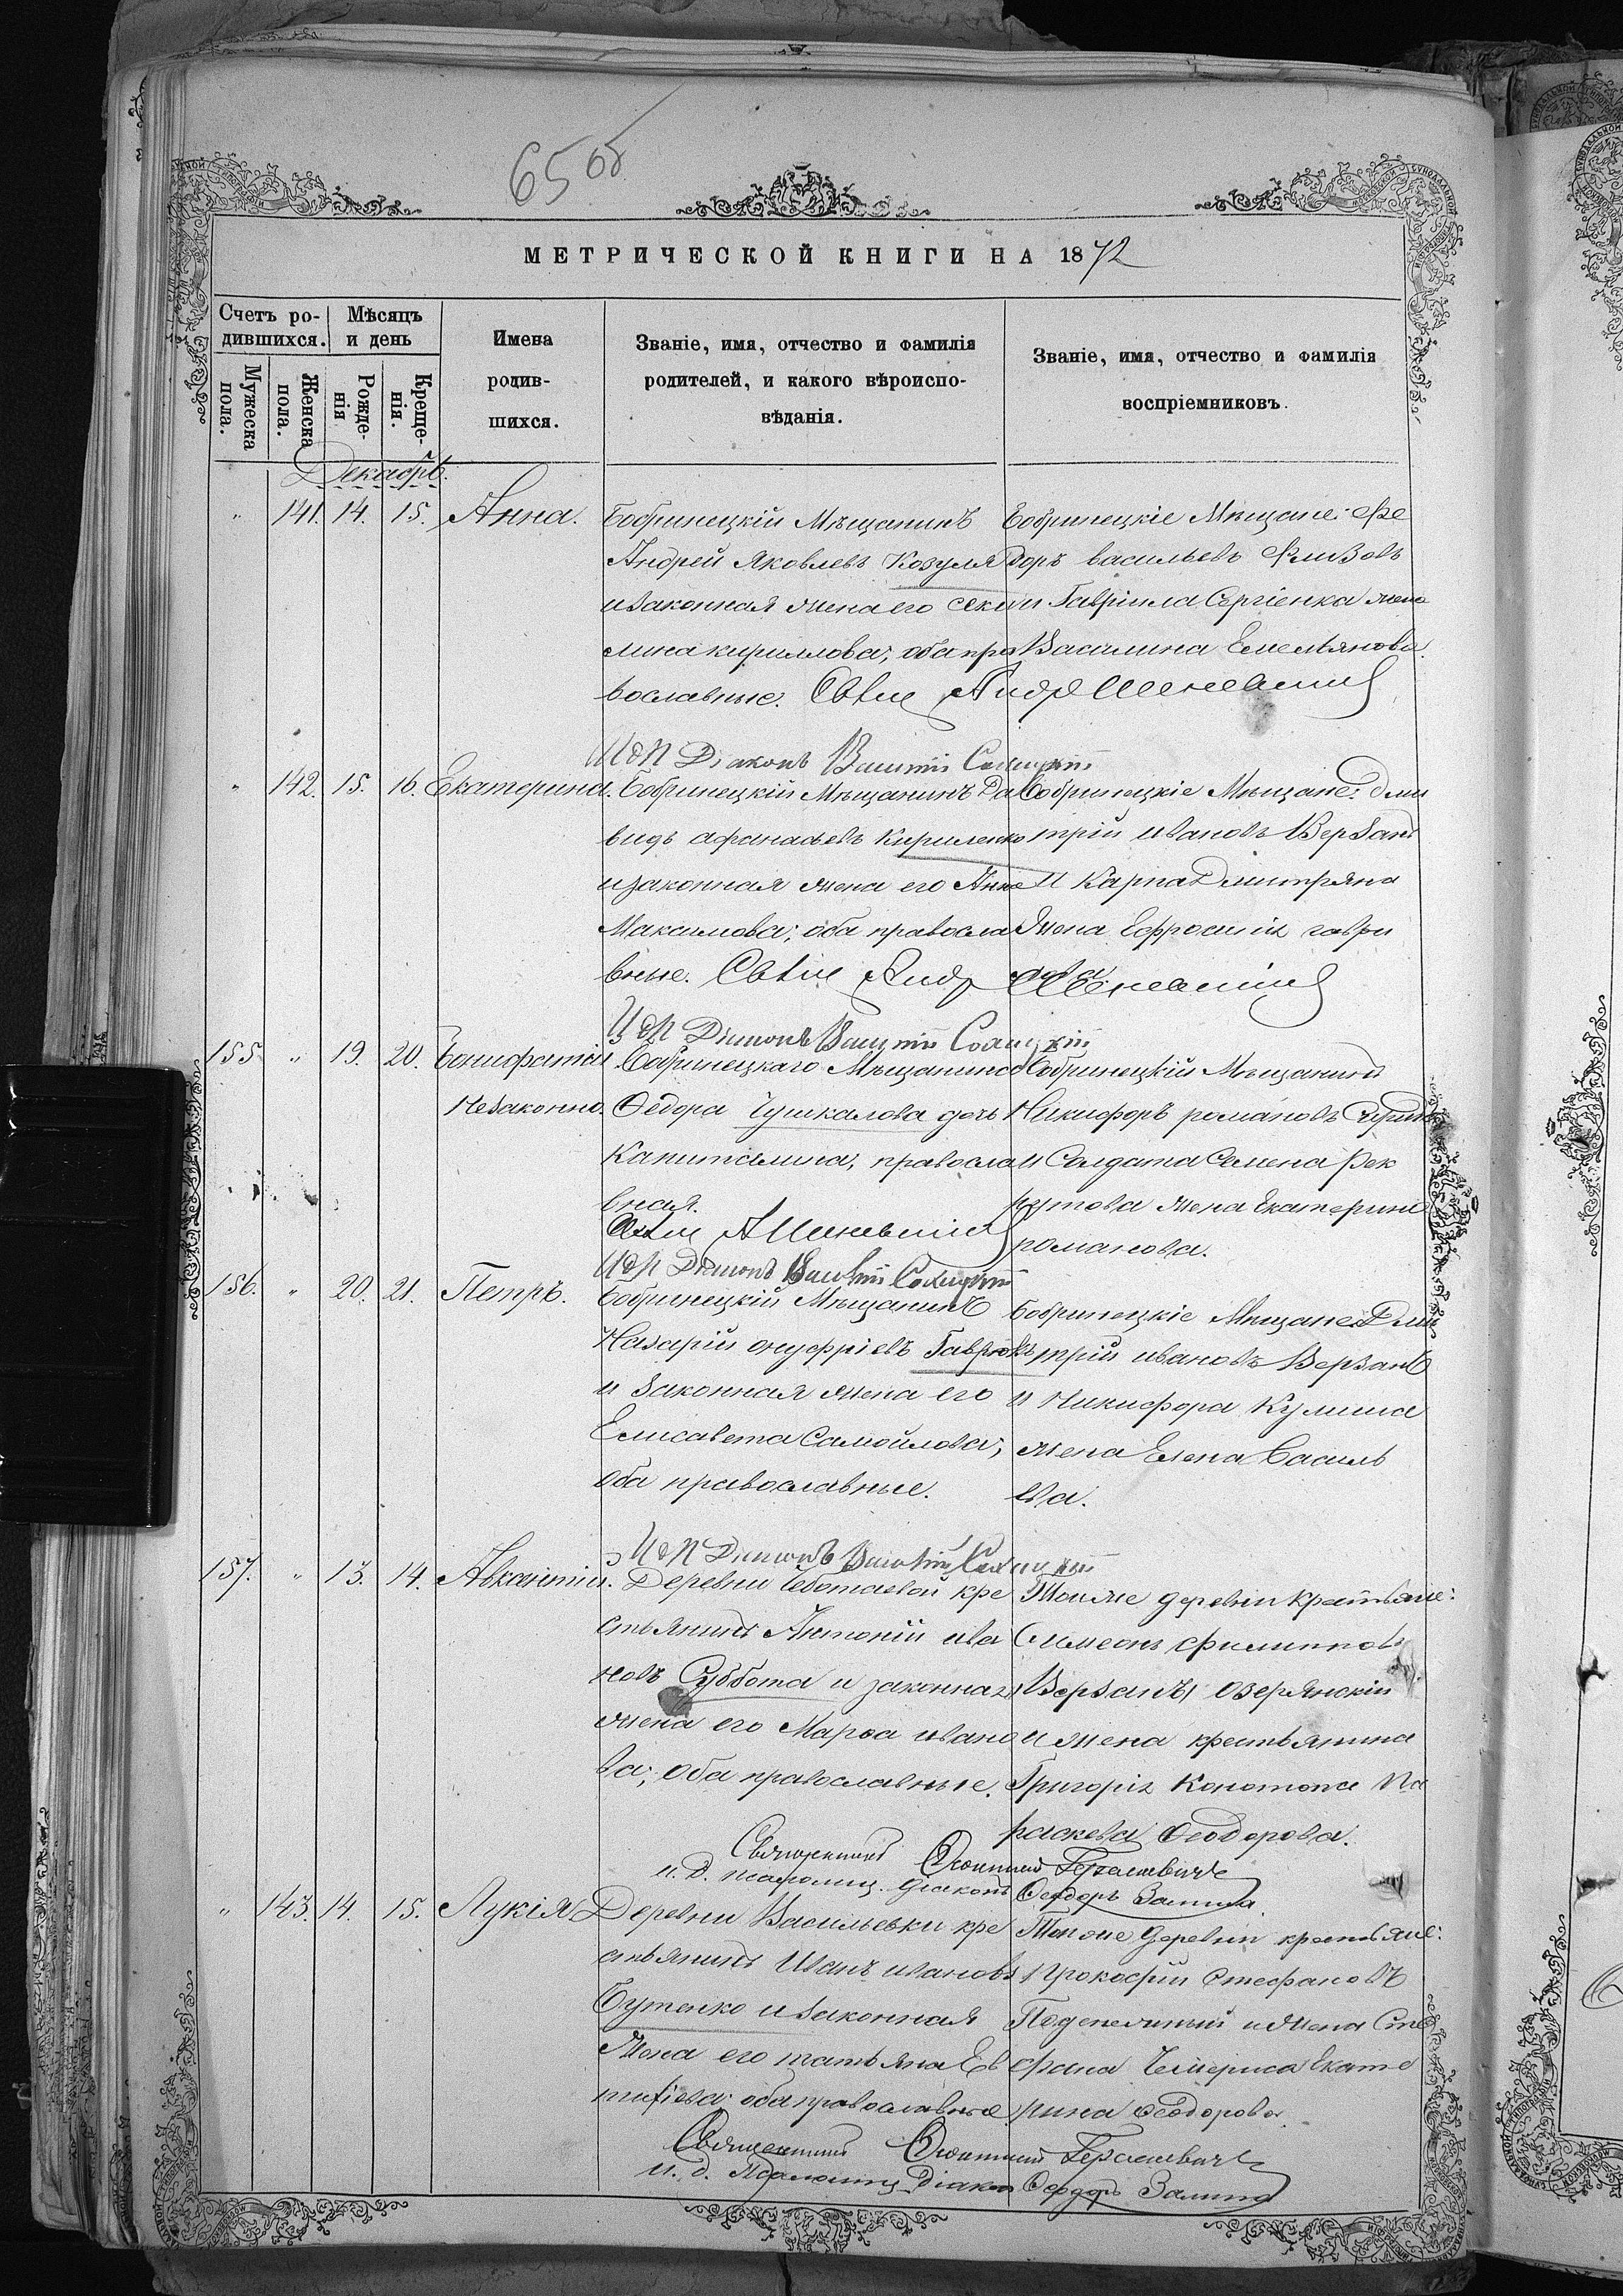 65 об
МЕТРИЧЕСКОЙ КНИГИ НА 1872
Счетъ ро-
дившихся.
Мѣсяцъ
и день
Мужеска
пола.
Женска
пола.
Рожде-
нія
Креще-
нія.
Имена
родив-
шихся.
Званіе, имя, отчество и фамилія
родителей, и какого вѣроиспо-
вѣданія.
Званіе, имя, отчество и фамилія
воспріемниковъ.
Декабрь.
" 141. 14. 15. Анна.
Бобринецкій Мѣщанинъ
Андрей Яковлевъ Козуля
и законная жена его Аки
лина кириллова; оба пра
вославные.
Бобринецкіе Мѣщане: Фе
доръ васильевъ
и Гавріила Сергіенка жена
Василина Емельянова.
И д П Діаконъ
" 142. 15. 16. Екатерина.
Бобринецкій Мѣщанинъ Да
видъ афанасьевъ Кириленко
и законная жена его Анна
Максимова; оба правосла
вные.
Бобринецкіе Мѣщане: Дми
трій ивановъ Верзанъ
и Карпа Дмитряна
жена Ефросинія гаври
лова.
И д П Діаконъ
155. " 19. 20. Вонифатій
Незаконно.
Бобринецкаго Мѣщанина
Ѳедора Чушкалова дочь
Капиталина, правосла
вная.
Бобринецкій Мѣщанинъ
Никифоръ романовъ
и Солдата Семена Рек
рутова жена Екатерина
романова.
И д П Діаконъ
156. " 20. 21. Петръ.
Бобринецкій Мѣщанинъ
Назарій онуфріевъ Гаврюкъ
и законная жена его
Елисавета Самойлова;
оба православные.
Бобринецкіе Мѣщане: Дми
трій ивановъ Верзанъ
и Никифора Кулиша
жена Елена Василь
ева.
И д П Діаконъ
157. " 13. 14. Авксентій.
Деревни Чеботаевой кре
стьянинъ Антоній ива
новъ Суббота и законная
жена его Марѳа ивано
ва; оба православные.
Тойже деревни Крестьяне:
Симеонъ филиппов
Верзанъ озерянскій
и жена крестьянина
Григорія Конотопа Па
раскева Ѳеодорова.
Священникъ
и. д. псаломщ. діаконъ Ѳеодоръ
" 143. 14. 15. Лукія.
Деревни Васильевки кре
стьянинъ Иванъ ивановъ
Бутенко и законная
жена его татьяна Ев
тифіева; оба православные
Тойже деревни крестьяне:
Прокофій Стефановъ
и жена Сте
фана Чемериса Екате
рина Ѳеодорова.
Священникъ
и. д. Псаломщ. Діаконъ Ѳеодоръ